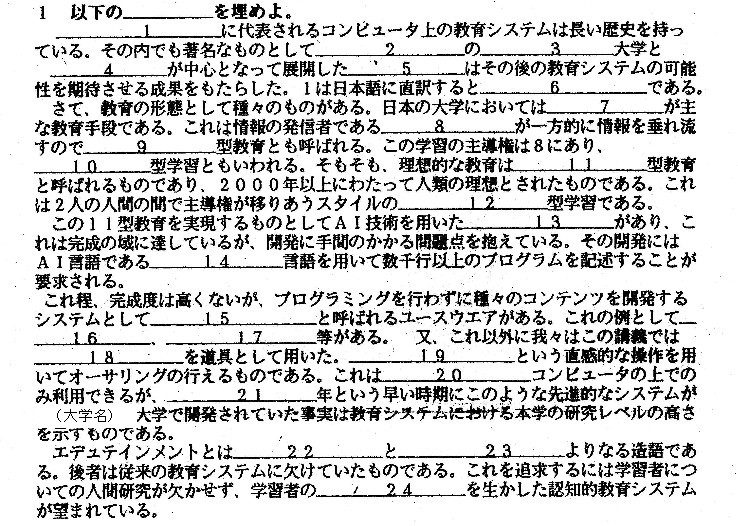 1　以下の＿＿＿＿＿＿を埋めよ。
＿＿＿＿1＿＿＿＿に代表されるコンピュータ上の教育システムは長い歴史を持っ
ている。その内でも著名なものとして＿＿＿＿2＿＿＿＿の＿＿＿＿3＿＿＿＿大学と
＿＿＿＿4＿＿＿＿が中心となって展開した＿＿＿＿5＿＿＿＿はその後の教育システムの可能
性を期待させる成果をもたらした。1は日本語に直訳すると＿＿＿＿6＿＿＿＿である。
さて、教育の形態として種々のものがある。日本の大学においては＿＿＿＿7＿＿＿＿が主
な教育手段である。これは情報の発信者である＿＿＿＿8＿＿＿＿が一方的に情報を垂れ流
すので＿＿＿＿9＿＿＿＿型教育とも呼ばれる。この学習の主導権は8にあり、
＿＿＿＿10＿＿＿＿型学習ともいわれる。そもそも、理想的な教育は＿＿＿＿11＿＿＿＿型教育
と呼ばれるものであり、2000年以上にわたって人類の理想とされたものである。これ
は2人の人間の間で主導権が移りあうスタイルの＿＿＿＿12＿＿＿＿型学習である。
この11型教育を実現するものとしてAI技術を用いた＿＿＿＿13＿＿＿＿があり、こ
れは完成の域に達しているが、開発に手間のかかる問題点を抱えている。その開発には
AI言語である＿＿＿＿14＿＿＿＿言語を用いて数千行以上のプログラムを記述することが
要求される。
これ程、完成度は高くないが、プログラミングを行わずに種々のコンテンツを開発する
システムとして＿＿＿＿15＿＿＿＿と呼ばれるユースウエアがある。これの例として＿
＿＿16＿＿＿、＿＿＿＿17＿＿＿＿等がある。　又、これ以外に我々はこの講義では
＿＿＿＿18＿＿＿＿を道具として用いた。＿＿＿＿19＿＿＿＿という直感的な操作を用
いてオーサリングの行えるものである。これは＿＿＿＿20＿＿＿＿コンピュータの上での
み利用できるが、＿＿＿＿21＿＿＿＿年という早い時期にこのような先進的なシステムが
（大学名）　大学で開発されていた事実は教育システムにおける本学の研究レベルの高さ
を示すものである。
エデュテインメントとは＿＿＿＿22＿＿＿＿と＿＿＿＿23＿＿＿＿よりなる造語であ
る。後者は従来の教育システムに欠けていたものである。これを追求するには学習者につ
いての人間研究が欠かせず、学習者の＿＿＿＿24＿＿＿＿を生かした認知的教育システム
が望まれている。